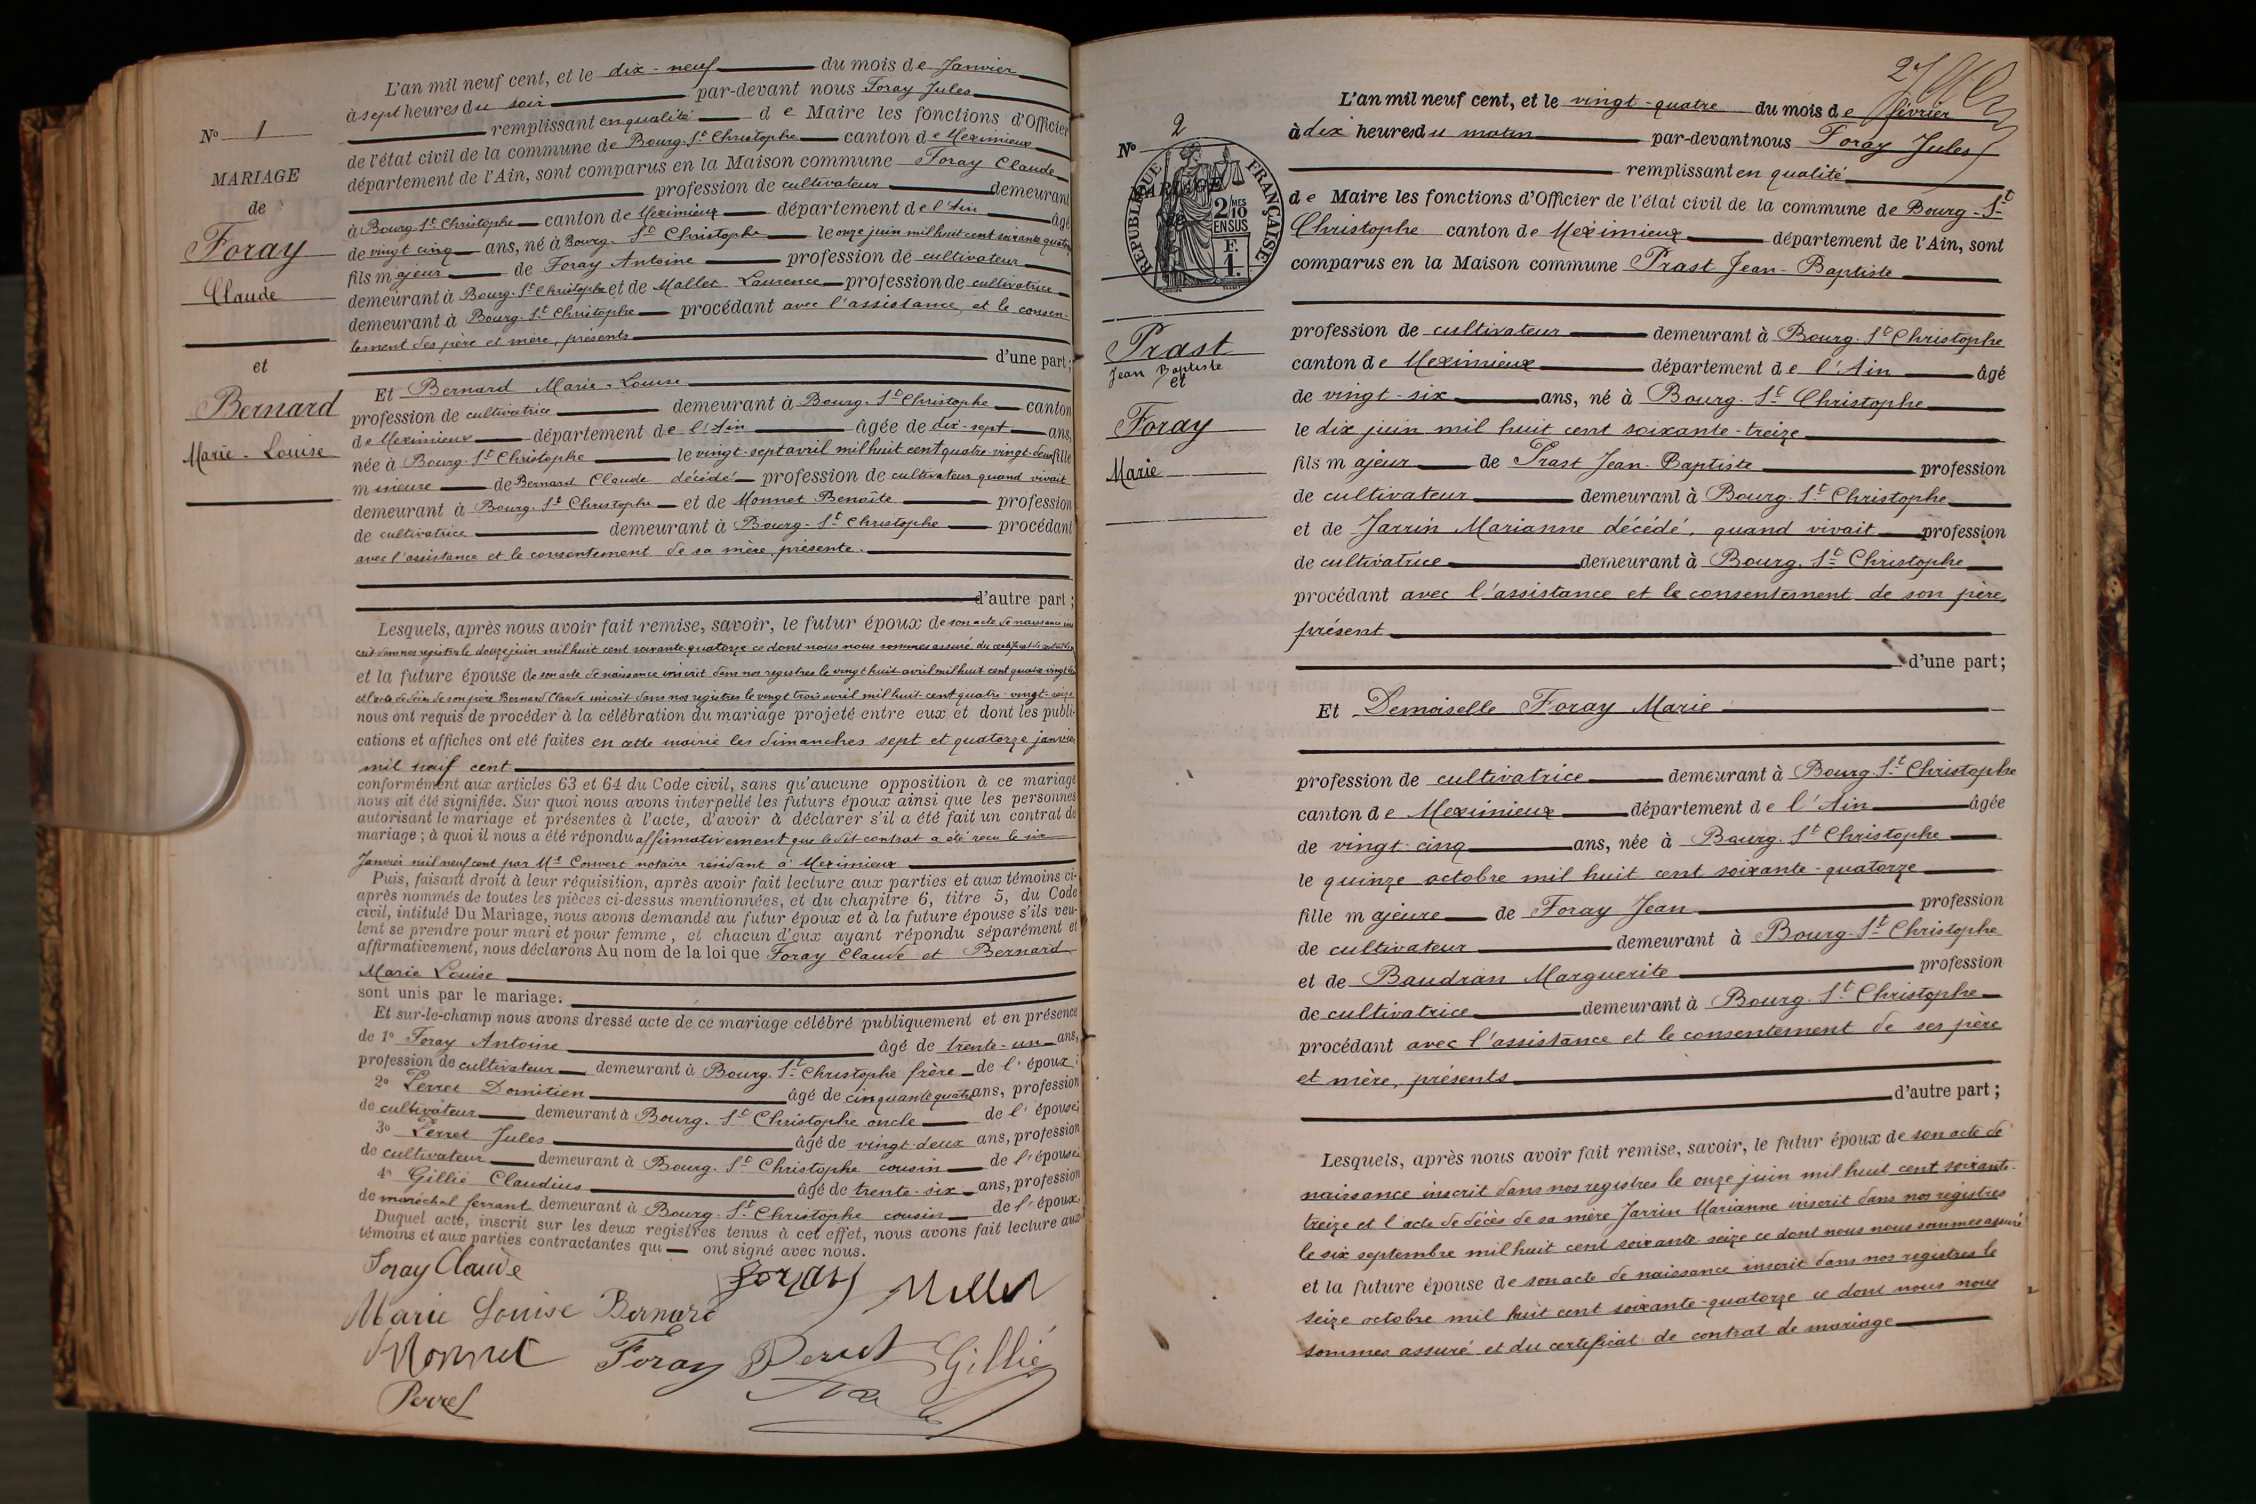 L'an mil neuf cent, et le dix-neuf du mois de Janvier
à sept heures du soir par-devant nous Foray Jules
remplissant en qualité de Maire les fonctions d'Officier
de l'état civil de la commune de Bourg-St Christophe canton de Meximieux
département de l'Ain, sont comparus en la Maison commune Foray Claude
profession de cultivateur demeurant
à Bourg-St Christophe canton de Meximieux département de l'Ain âgé
de vingt cinq ans, né à Bourg-St Christophe le onze juin mil huit cent soixante quatorze
fils majeur de Foray Antoine profession de cultivateur
demeurant à Bourg-St Christophe et de Mallet Laurence profession de cultivatrice
demeurant à Bourg-St Christophe procédant avec l'assistance et le consen-
tement des père et mère, présents
d'une part;
No 1
MARIAGE
de
Foray
Claude
et
Bernard
Marie-Louise
Et Bernard Marie-Louise
profession de cultivatrice demeurant à Bourg-St Christophe canton
de Meximieux département de l'Ain âgée de dix-sept ans,
née à Bourg-St Christophe le vingt-sept avril mil huit cent quatre-vingt-deux fille
mineure de Bernard Claude décédé profession de cultivateur quand vivait
demeurant à Bourg-St Christophe et de Monnet Benoîte profession
de cultivatrice demeurant à Bourg-St Christophe procédant
avec l'assistance et le consentement de sa mère, présente.
d'autre part;
Lesquels, après nous avoir fait remise, savoir, le futur époux de son acte de naissance ins
crit dans nos registres le douze juin mil huit cent soixante quatorze ce dont nous nous sommes assuré du certificat de contrat
et la future épouse de son acte de naissance inscrit dans nos registres le vingt huit avril mil huit cent quatre vingt
et l'acte de décès de son père Bernard Claude inscrit dans nos registres le vingt trois avril mil huit cent quatre-vingt-seize
nous ont requis de procéder à la célébration du mariage projeté entre eux et dont les publi-
cations et affiches ont été faites en cette mairie les dimanches sept et quatorze janvier
mil neuf cent
conformément aux articles 63 et 64 du Code civil, sans qu'aucune opposition à ce mariage
nous ait été signifiée. Sur quoi nous avons interpellé les futurs époux ainsi que les personnes
autorisant le mariage et présentes à l'acte, d'avoir à déclarer s'il a été fait un contrat de
mariage; à quoi il nous a été répondu affirmativement que le dit contrat a été recu le six
Janvier mil neuf cent par Me Convert notaire résidant à Meximieux
Puis, faisant droit à leur réquisition, après avoir fait lecture aux parties et aux témoins ci-
après nommés de toutes les pièces ci-dessus mentionnées, et du chapitre 6, titre 5, du Code
civil, intitulé Du Mariage, nous avons demandé au futur époux et à la future épouse s'ils veu-
lent se prendre pour mari et pour femme, et chacun d'eux ayant répondu séparément et
affirmativement, nous déclarons Au nom de la loi que Foray Claude et Bernard
Marie Louise
sont unis par le mariage.
Et sur-le-champ nous avons dressé acte de ce mariage célébré publiquement et en présence
de 1o Foray Antoine âgé de trente-un ans,
profession de cultivateur demeurant à Bourg-St Christophe frère de l'époux;
2o Perret Domitien âgé de cinquante quatre ans, profession
de cultivateur demeurant à Bourg-St Christophe oncle de l'épouse;
3o Perret Jules âgé de vingt-deux ans, profession
de cultivateur demeurant à Bourg-St Christophe cousin de l'épouse;
4o Gillié Claudius âgé de trente-six ans, profession
de maréchal ferrant demeurant à Bourg-St Christophe cousin de l'époux.
Duquel acte, inscrit sur les deux registres tenus à cet effet, nous avons fait lecture aux
témoins et aux parties contractantes qui ont signé avec nous.
Foray Claude
Foray Mallet
Marie Louise Bernard
Monnet Foray Perret Gillié
Perret
2
L'an mil neuf cent, et le vingt-quatre du mois de février
à dix heures du matin par-devant nous Foray Jules
remplissant en qualité
de Maire les fonctions d'Officier de l'état civil de la commune de Bourg-St
Christophe canton de Meximieux département de l'Ain, sont
comparus en la Maison commune Prast Jean-Baptiste
No 2
MARIAGE
de
RÉPUBLIQUE FRANÇAISE
2 MES
10
EN SUS
F.
1.
Prast
Jean Baptiste
et
Foray
Marie
profession de cultivateur demeurant à Bourg-St Christophe
canton de Meximieux département de l'Ain âgé
de vingt-six ans, né à Bourg-St Christophe
le dix juin mil huit cent soixante-treize
fils majeur de Prast Jean-Baptiste profession
de cultivateur demeurant à Bourg-St Christophe
et de Jarrin Marianne décédé, quand vivait profession
de cultivatrice demeurant à Bourg-St Christophe
procédant avec l'assistance et le consentement de son père,
présent
d'une part;
Et Demoiselle Foray Marie
profession de cultivatrice demeurant à Bourg-St Christophe
canton de Meximieux département de l'Ain âgée
de vingt-cinq ans, née à Bourg-St Christophe
le quinze octobre mil huit cent soixante-quatorze
fille majeure de Foray Jean profession
de cultivateur demeurant à Bourg-St Christophe
et de Baudran Marguerite profession
de cultivatrice demeurant à Bourg-St Christophe
procédant avec l'assistance et le consentement de ses père
et mère, présents
d'autre part;
Lesquels, après nous avoir fait remise, savoir, le futur époux de son acte de
naissance inscrit dans nos registres le onze juin mil huit cent soixante-
treize et l'acte de décès de sa mère Jarrin Marianne inscrit dans nos registres
le six septembre mil huit cent soixante-seize ce dont nous nous sommes assuré
et la future épouse de son acte de naissance inscrit dans nos registres le
seize octobre mil huit cent soixante-quatorze ce dont nous nous
sommes assuré et du certificat de contrat de mariage